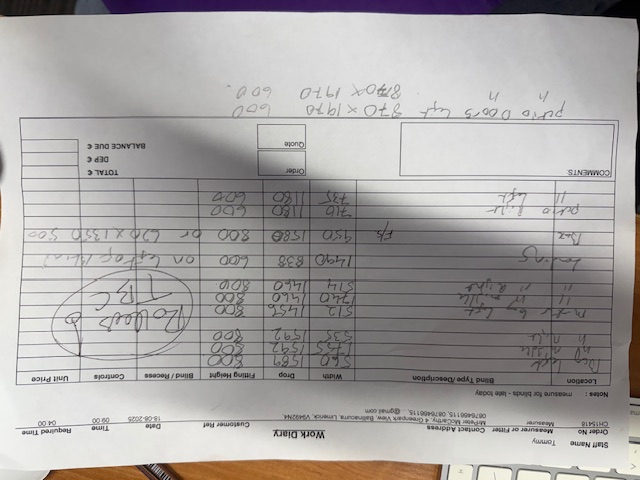 Work Diary
Staff Name Tommy
Order No Measurer or Fitter Contact Address Customer Ref Date Time Required Time
CH15418 Measurer Mr Peter McCarthy, 4 Greenpark View, Ballinacurra, Limerick, V94N2N4, 18-08-2025 09:00 04:00
0876486115, 0876486115, @gmail.com
Notes : measure for blinds - late today
Location Blind Type /Description Width Drop Fitting Height Blind / Recess Controls Unit Price
Bed left 560 1589 800
" middle 755 1592 800
" right 535 1592 800
left 512 1456 800
" " middle 1740 1460 800
" " Right 514 1460 800
Rollers
TBC
1490 838 600 on left of blind
Box F/s 950 1580 800 or 620 x 1350 500
patio right 710 1180 600
" left 735 1180 600
COMMENTS
Order
Quote
TOTAL €
DEP €
BALANCE DUE €
patio Doors left 870 x 1970 600
" " 870 x 1970 600